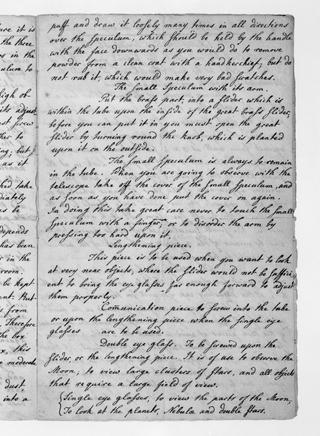 ure it is
the three
rs in the
eculum to
puff and draw it loosely many times in all directions
over the Speculum, which should be held by the handle
with the face downwards as you would do to remove
powder from a clean coat with a handkerchief, but do
not rub it, which would make very bad scratches.
The small Speculum with its arm.
Put the brass part into a slider which is
within the tube upon the inside of the great brass slider,
before you can put it in you must open the great
slider by turning round the knob, which is planted
upon it on the outside.
The small Speculum is always to remain
in the tube. When you are going to observe with the
telescope take off the cover of the small Speculum, and
as soon as you have done put the cover on again.
In doing this take great care never to touch the small
Speculum with a finger, or to disorder the arm by
pressing too hard upon it.
Lengthening piece.
This piece is to be used when you want to look
at very near objects, where the slider would not be suffici
ent to bring the eye glasses far enough forward to adjust
them properly.
Comunication piece to screw into the tube
or upon the lengthening piece when the single eye
glasses are to be used.
Double eye glass. To be screwed upon the
slider, or the lengthening piece. It is of use to observe the
Moon, to view large clusters of stars, and all objects
that require a large field of view.
Single eye glasses, to view the parts of the Moon,
To look at the planets, Nebula and double stars.